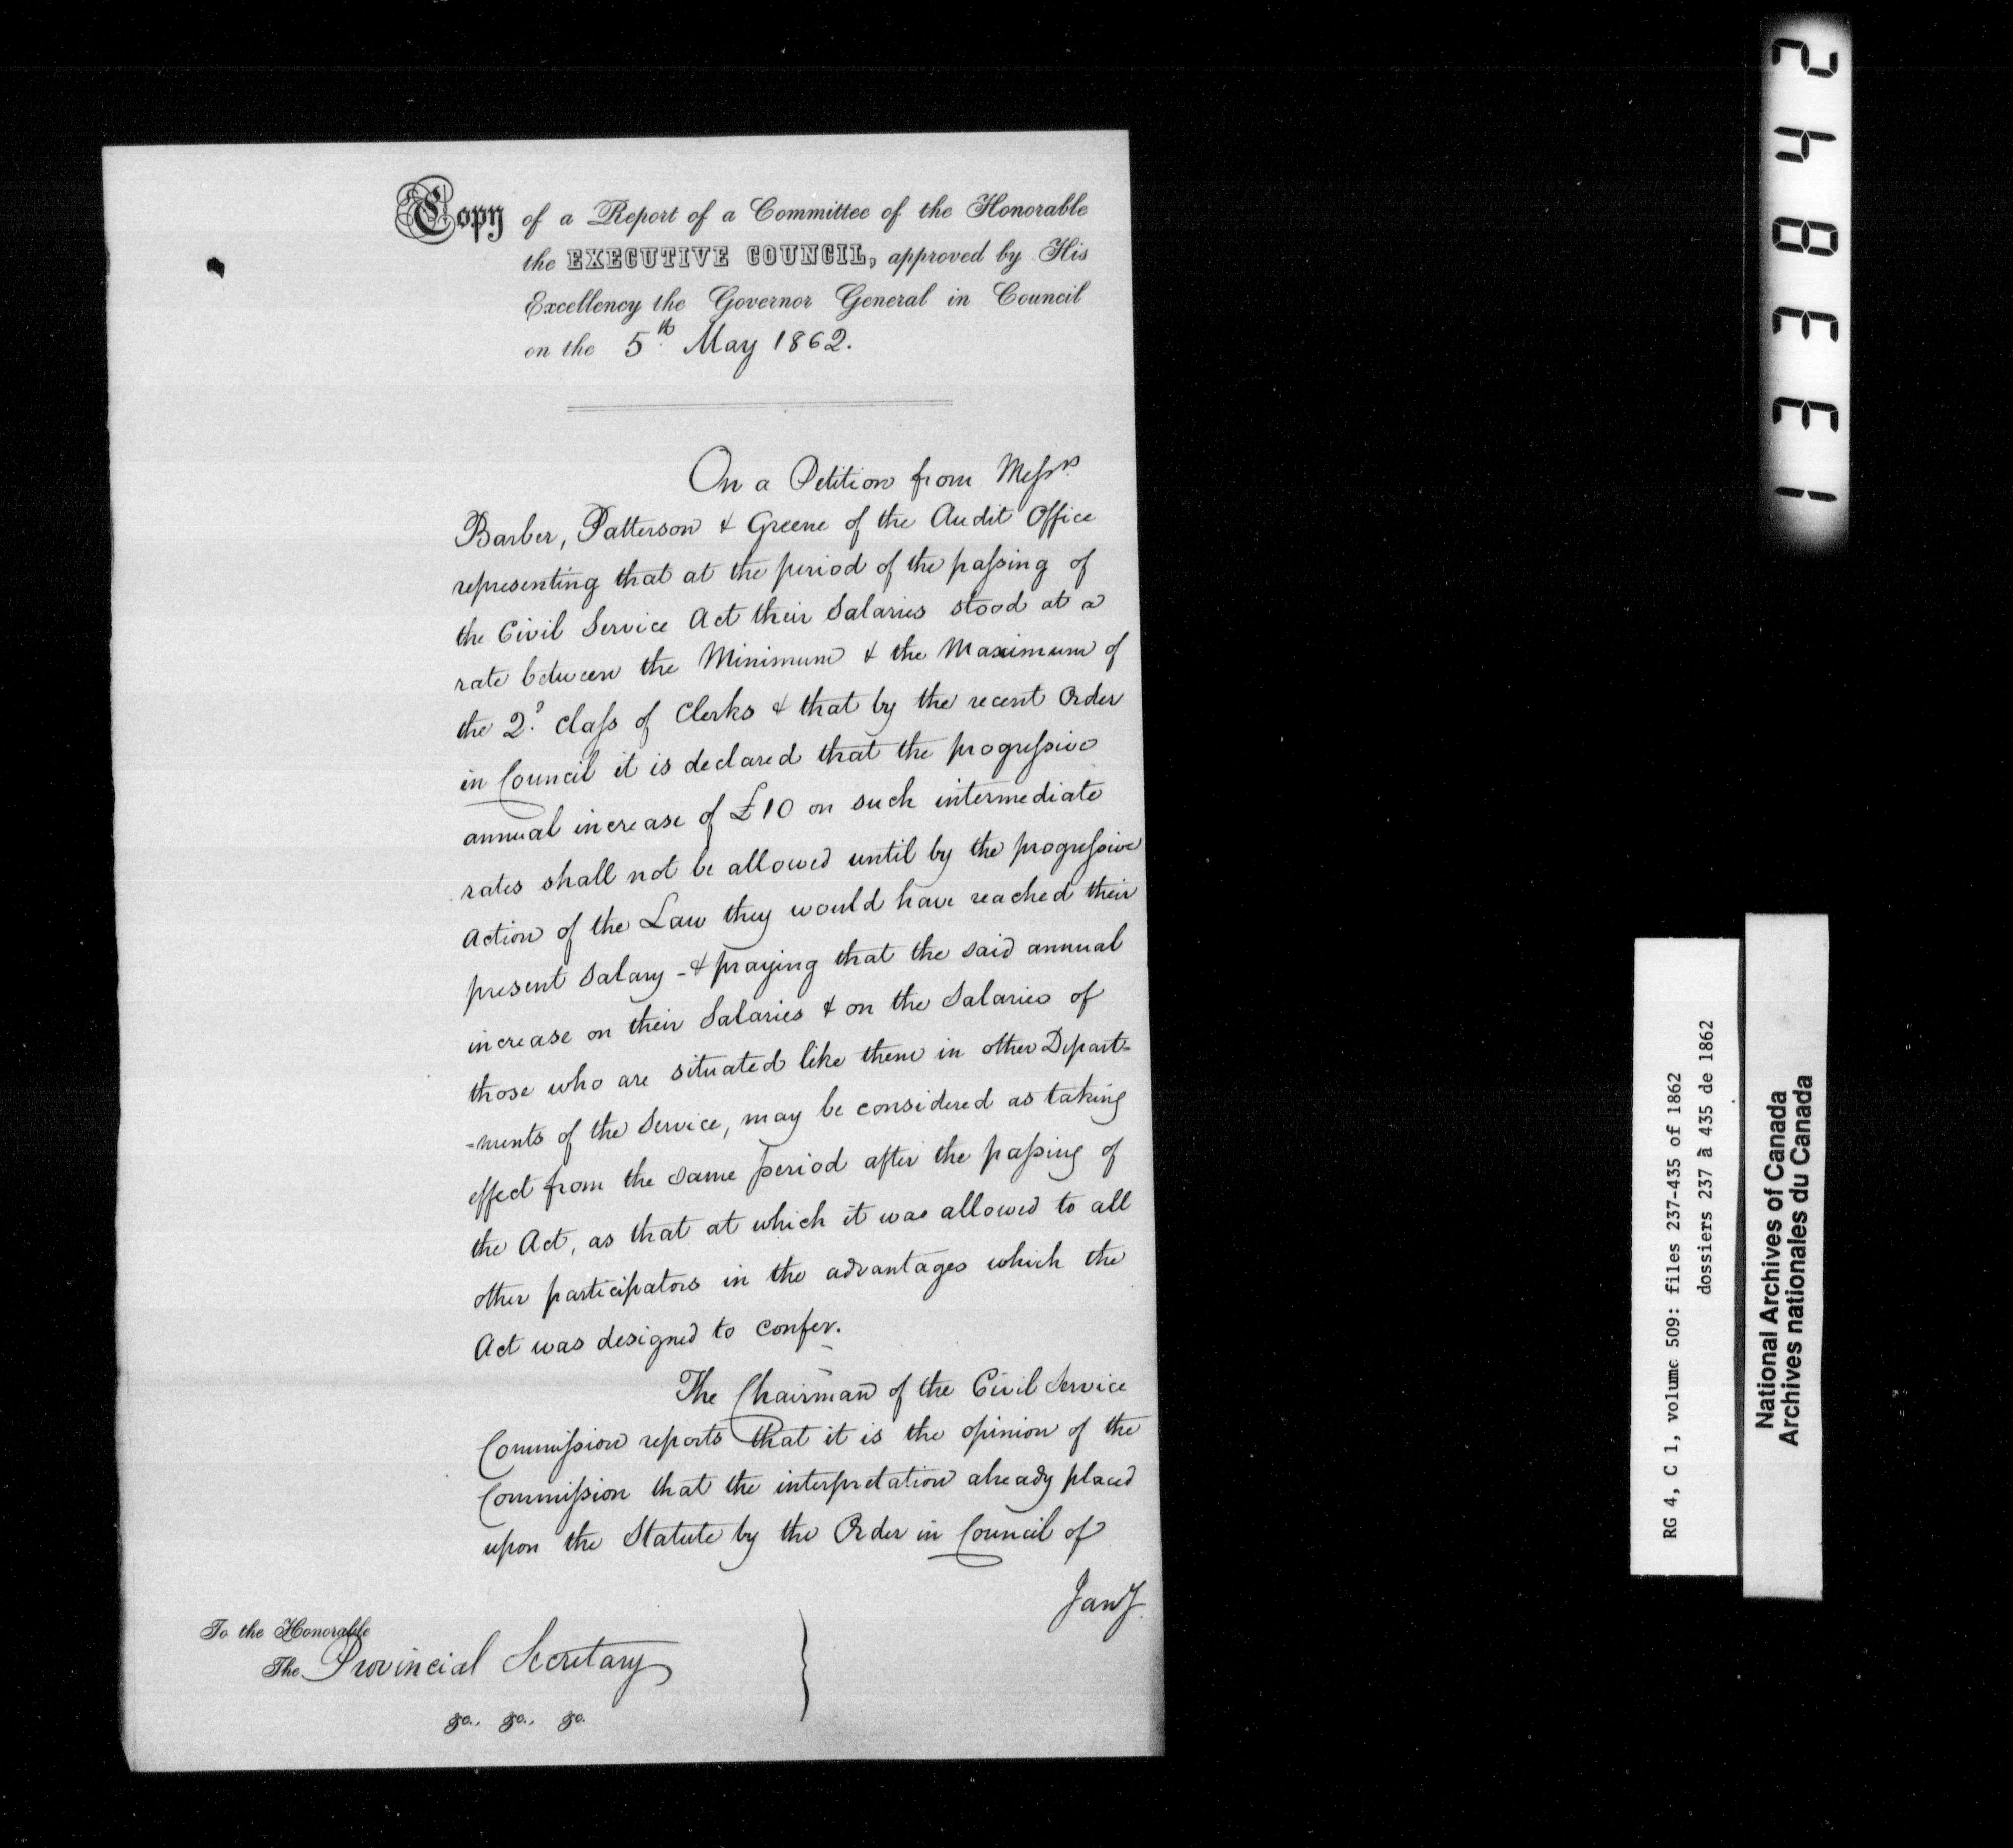 Copy of a Report of a Committee of the Honorable
the EXECUTIVE COUNCIL, approved by His
Excellency the Governor General in Council
on the 5th May 1862.
On a Petition from Messrs
Barber, Patterson & Greene of the Audit Office
representing that at the period of the passing of
the Civil Service Act their Salaries stood at a
rate between the Minimum & the Maximum of
the 2d class of Clerks & that by the recent Order
in Council it is declared that the progressive
annual increase of £10 on such intermediate
rates shall not be allowed until by the progressive
action of the Law they would have reached their
present Salary - & praying that the said annual
increase on their Salaries & on the Salaries of
those who are situated like them in other Depart=
=ments of the Service, may be considered as taking
effect from the same period after the passing of
the Act, as that at which it was allowed to all
other participators in the advantages which the
Act was designed to confer.
The Chairman of the Civil Service
Commission reports that it is the opinion of the
Commission that the interpretation already placed
upon the Statute by the Order in Council of
Jany.
To the Honorable
The Provincial Secretary
&c., &c., &c.
133842
RG 4, C 1, volume 509: files 237-435 of 1862
dossiers 237 à 435 de 1862
National Archives of Canada
Archives nationales du Canada